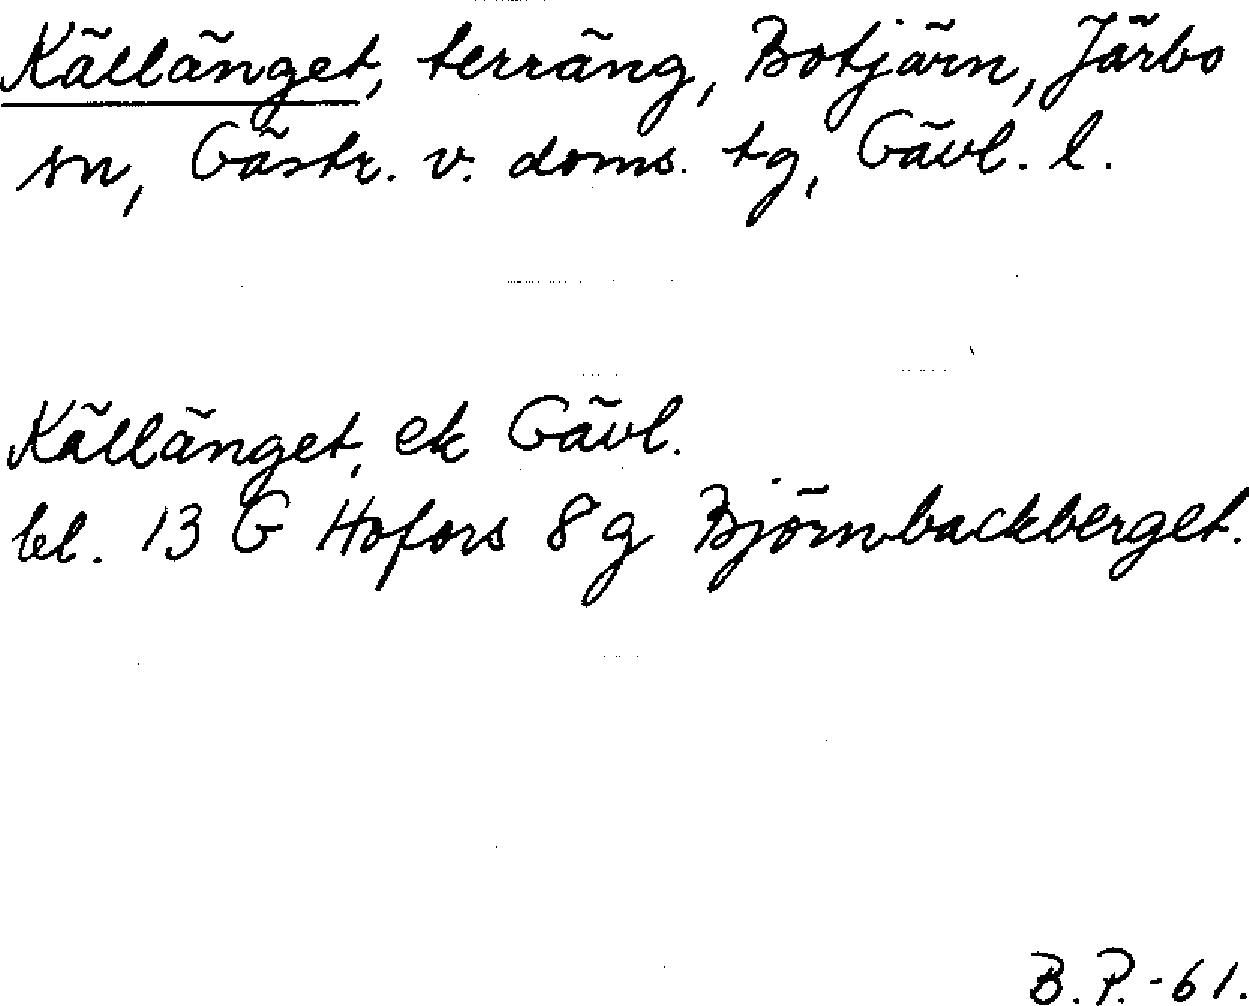 Källänget, terräng, Botjärn, Järbo
sn, Gästr. v. doms. tg, Gävl. l.
Källänget, ek Gävl.
bl. 13 G Hofors 8 g Björnbackberget.
B.P.-61.